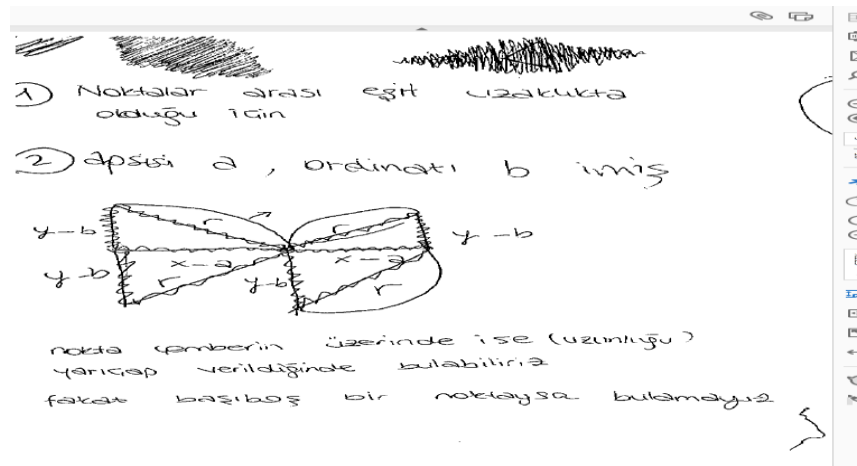 1) Noktalar arası eşit uzaklıkta
olduğu için
2) apsisi a, ordinatı b imiş
r
r
y-b
y-b
x-a
x-a
y-b
r
y-b
r
nokta çemberin üzerinde ise (uzunluğu)
yarıçap verildiğinde bulabiliriz
fakat başıboş bir noktaysa bulamayız